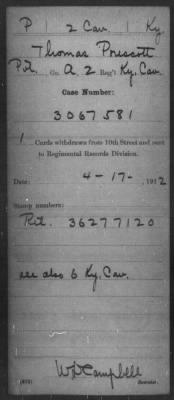 P | 2 Cav. | Ky.
Thomas Prescott
Pvt. Co. A, 2 Reg't Ky. Cav.
Case Number:
3067581
1 Cards withdrawn from 10th Street and sent
to Regimental Records Division.
Date: 4-17-, 1912
Stamp numbers:
Ret. 36277120
see also 6 Ky. Cav.
W D Campbell
Searcher.